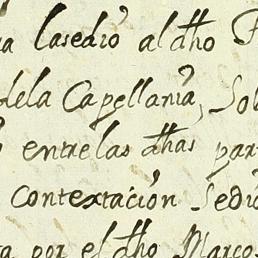 lasedio al dho
dela Capellania, Sob
entrelas dhas par
contextación Sedio
por el dho Marcos